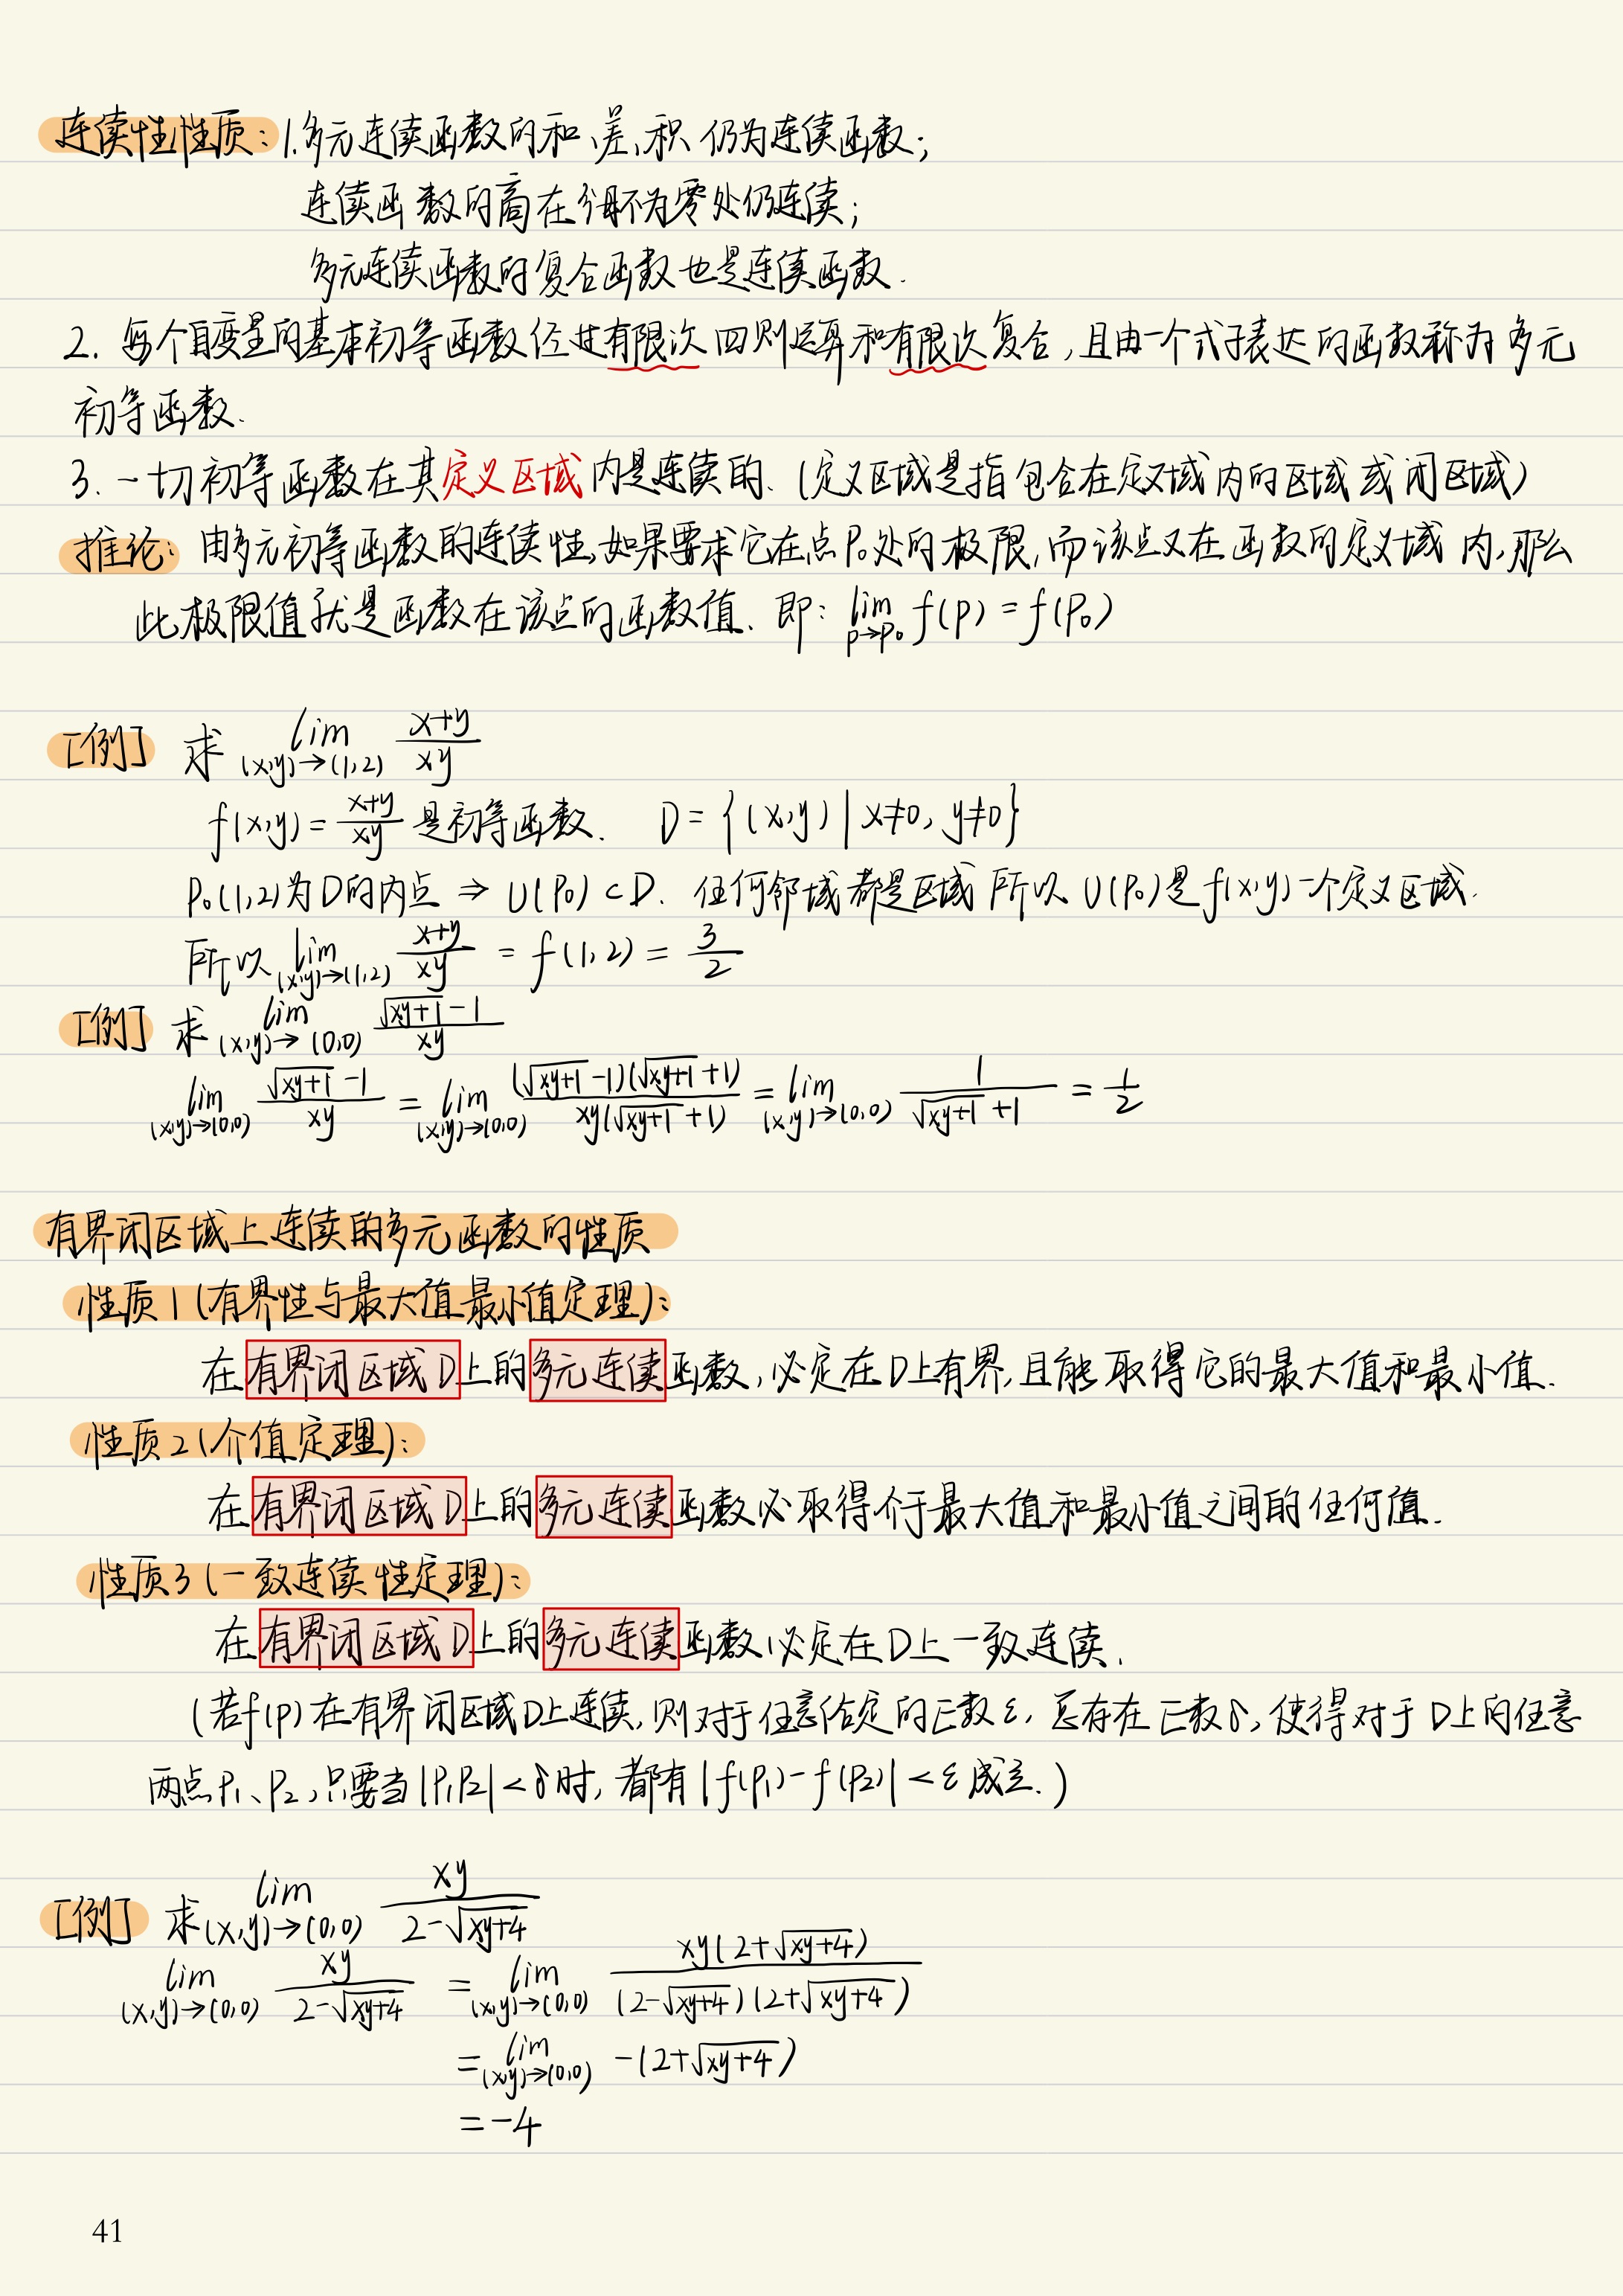 连续性性质：1.多元连续函数的和、差、积 仍为连续函数；
连续函数的商在分母不为零处仍连续；
多元连续函数的复合函数也是连续函数.
2. 每个自变量的基本初等函数经过有限次四则运算和有限次复合，且由一个式子表达的函数称为多元
初等函数.
3. 一切初等函数在其定义区域内是连续的.（定义区域是指包含在定义域内的区域或闭区域）
推论：由多元初等函数的连续性,如果要求它在点P₀处的极限,而该点又在函数的定义域内,那么
此极限值就是函数在该点的函数值. 即：lim_{P→P₀} f(P) = f(P₀)
[例] 求 lim_{(x,y)→(1,2)} (x+y)/(xy)
f(x,y) = (x+y)/(xy) 是初等函数. D = {(x,y) | x≠0, y≠0}
P₀(1,2)为D的内点 ⇒ U(P₀) ⊂ D. 任何邻域都是区域 所以 U(P₀)是f(x,y)一个定义区域.
所以 lim_{(x,y)→(1,2)} (x+y)/(xy) = f(1,2) = 3/2
[例] 求 lim_{(x,y)→(0,0)} (√(xy+1) - 1)/(xy)
lim_{(x,y)→(0,0)} (√(xy+1) - 1)/(xy) = lim_{(x,y)→(0,0)} ((√(xy+1) - 1)(√(xy+1) + 1))/(xy(√(xy+1) + 1)) = lim_{(x,y)→(0,0)} 1/(√(xy+1) + 1) = 1/2
有界闭区域上连续的多元函数的性质
性质1(有界性与最大值最小值定理)：
在有界闭区域D上的多元连续函数,必定在D上有界,且能取得它的最大值和最小值.
性质2(介值定理)：
在有界闭区域D上的多元连续函数必取得介于最大值和最小值之间的任何值.
性质3(一致连续性定理)：
在有界闭区域D上的多元连续函数必定在D上一致连续.
(若f(P)在有界闭区域D上连续,则对于任意给定的正数ε, 总存在正数δ, 使得对于D上的任意
两点P₁、P₂,只要当|P₁P₂| < δ时, 都有|f(P₁) - f(P₂)| < ε成立.)
[例] 求 lim_{(x,y)→(0,0)} xy/(2-√(xy+4))
lim_{(x,y)→(0,0)} xy/(2-√(xy+4)) = lim_{(x,y)→(0,0)} xy(2+√(xy+4))/((2-√(xy+4))(2+√(xy+4)))
= lim_{(x,y)→(0,0)} -(2+√(xy+4))
= -4
41